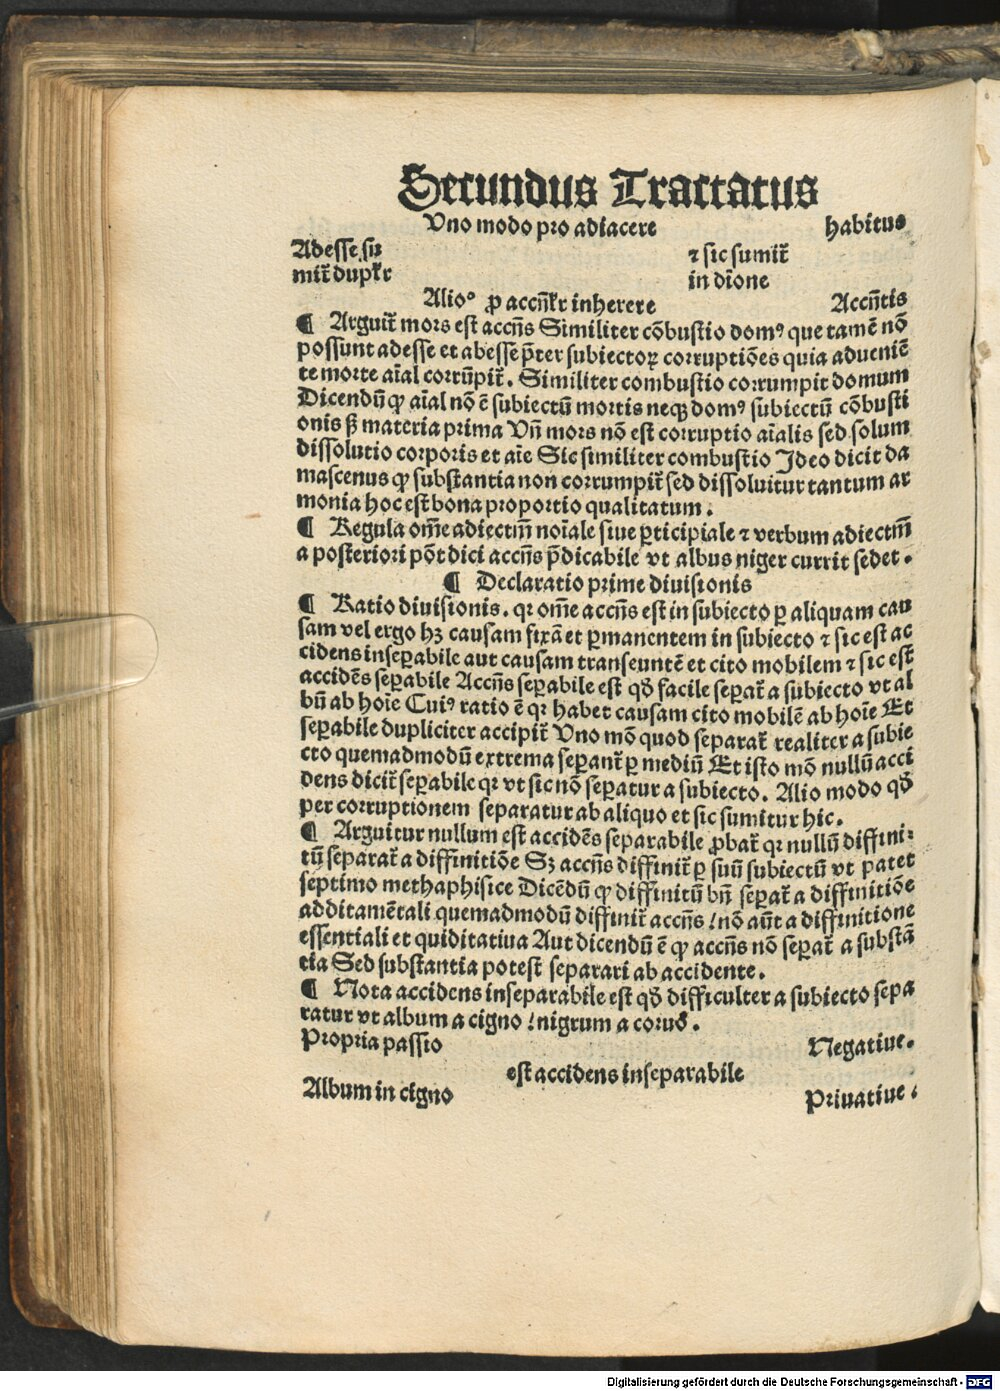 Secundus Tractatus
Uno modo pro adiacere habitus
Adesse su
mit᷑ duplr̃ ⁊ sic sumit᷑
in diōne
Alio° ꝓ accñr̃ inherere Accñtis
¶ Arguit᷑ mors est accñs Similiter cōbustio domꝰ que tamē nō
possunt adesse et abesse p̄ter subiectoꝝ corruptiōes quia adueniē
te morte aīal corrūpit᷑. Similiter combustio corrumpit domum
Dicendū ꝙ aīal nō ē subiectū mortis neqꝫ domꝰ subiectū cōbusti
onis ß materia prima Vñ mors nō est corruptio aīalis sed solum
dissolutio corporis et aīe Sic similiter combustio Ideo dicit da
mascenus ꝙ substantia non corrumpit᷑ sed dissoluitur tantum ar
monia hoc est bona proportio qualitatum.
¶ Regula om̄e adiectiū noīale siue ꝑticipiale ⁊ verbum adiectiū
a posteriori pōt dici accñs p̄dicabile vt albus niger currit sedet.
¶ Declaratio prime diuisionis
¶ Ratio diuisionis. qꝛ om̄e accñs est in subiecto ꝑ aliquam cau
sam vel ergo hꝫ causam fixā et ꝑmanentem in subiecto ⁊ sic est ac
cidens insepabile aut causam transeuntē et cito mobilem ⁊ sic est
accidēs seꝑabile Accñs seꝑabile est qđ facile seꝑat᷑ a subiecto vt al
bū ab hoīe Cuiꝰ ratio ē qꝛ habet causam cito mobilē ab hoīe Et
seꝑabile dupliciter accipit᷑ Uno mō quod separat᷑ realiter a subie
cto quemadmodū extrema seꝑant᷑ ꝑ mediū Et isto mō nullū acci
dens dicit᷑ seꝑabile qꝛ vt sic nō seꝑatur a subiecto. Alio modo qđ
per corruptionem separatur ab aliquo et sic sumitur hic.
¶ Arguitur nullum est accidēs separabile ꝓbat᷑ qꝛ nullū diffini⸗
tū separat᷑ a diffinitiōe Sꝫ accñs diffinit᷑ ꝑ suū subiectū vt patet
septimo methaphisice Dicēdū ꝙ diffinitū bñ seꝑat᷑ a diffinitiōe
additamētali quemadmodū diffinit᷑ accñs / nō aūt a diffinitione
essentiali et quiditatiua Aut dicendū ē ꝙ accñs nō seꝑat᷑ a substā
tia Sed substantia potest separari ab accidente.
¶ Nota accidens inseparabile est qđ difficulter a subiecto sepa
ratur vt album a cigno / nigrum a coruo.
Propria passio Negatiue.
est accidens inseparabile
Album in cigno Priuatiue.
Digitalisierung gefördert durch die Deutsche Forschungsgemeinschaft - DFG